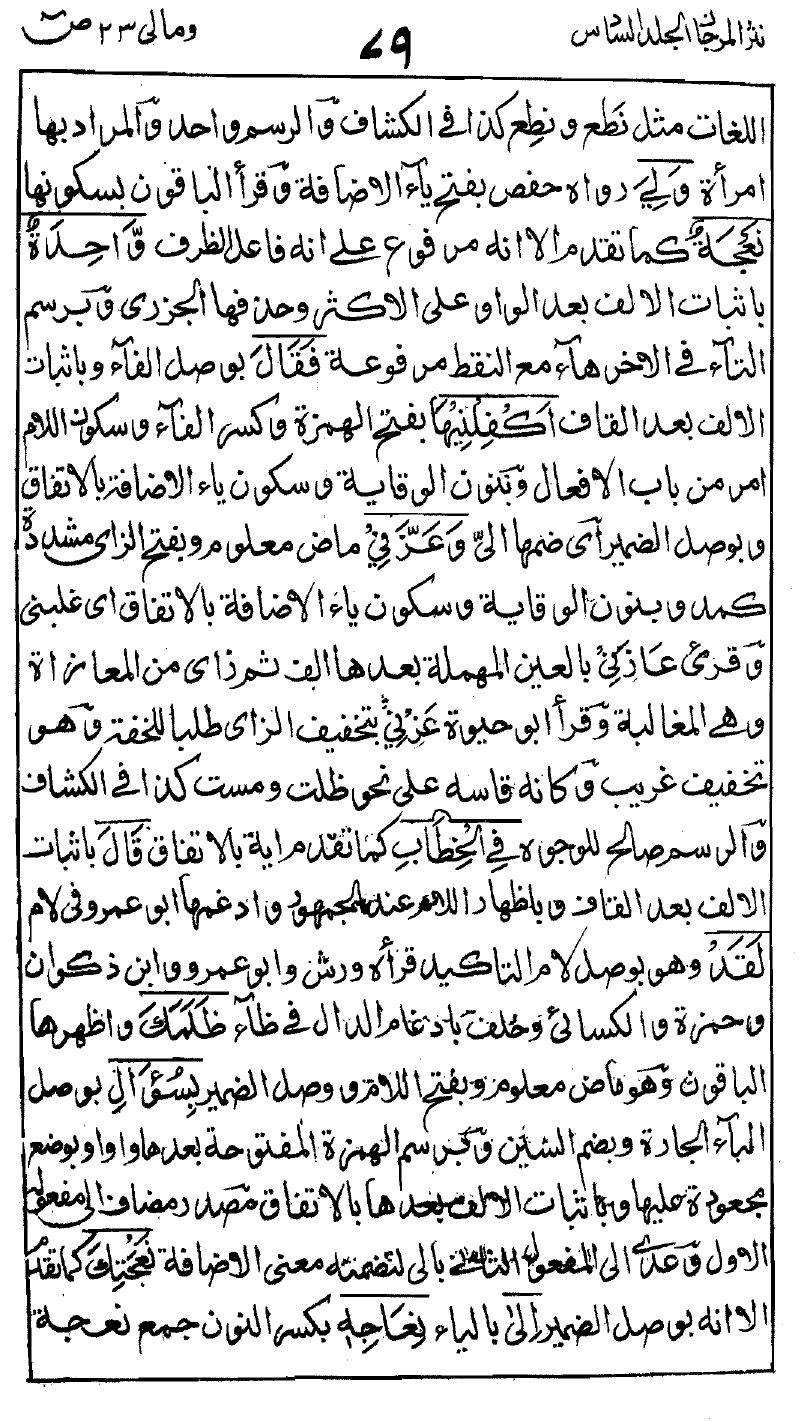 نثر المرجان الجلد السادس
٧٩
ومالی ٢٣ ص
اللغات مثل نَطع و نِطع كذا فى الكشاف وَّالرسم واحد وَّالمراد بها
امرأة وَلِيَ رواه حفص بفتح ياء الاضافة وَّقرأ الباقون بسكونها
نَعْجَةٌ كما تقدم الا انه مرفوع على انه فاعل الظرف وَّاحِدَةٌ
باثبات الالف بعد الواو على الاكثر وحذفها الجزرى وَّبرسم
التآء فى الاخر هآء مع النقط مرفوعة فَقَالَ بوصل الفآء وباثبات
الالف بعد القاف اَكْفِلْنِيْهَا بفتح الهمزة وكسر الفآء وسكون اللام
امر من باب الافعال وَّبنون الوقاية وسكون ياء الاضافة بالاتفاق
وبوصل الضمير اى ضمها الىّ وَعَزَّنِيْ ماض معلوم وبفتح الزاى مشددة
كمد وبنون الوقاية وسكون ياء الاضافة بالاتفاق اى غلبنى
وَّقرئ عَازَّنِيْ بالعين المهملة بعدها الف ثم زاى من المعازاة
وهى المغالبة وَّقرأ ابو حيوة عَزَنِيْ بتخفيف الزاى طلبا للخفة وَّهو
تخفيف غريب وَّكانه قاسه على نحو ظلت ومست كذا فى الكشاف
وَّالرسم صالح للوجوه فِي الْخِطَابِ كما تقدم اية بالاتفاق قَالَ باثبات
الالف بعد القاف وباظهار اللام عند الجمهور وادغمها ابو عمرو فى لام
لَقَدْ وهو بوصل لام التاكيد قرأه ورش وابو عمرو وابن ذكوان
وحمزة والكسائى وخلف بادغام الدال فى ظآء ظَلَمَكَ واظهرها
الباقون وَّهو ماض معلوم وبفتح اللام ووصل الضمير بِسُؤَالِ بوصل
البآء الجارة وبضم السين وَّبرسم الهمزة المفتوحة بعدها واوا وبوضع
مجعودة عليها وباثبات الالف بعدها بالاتفاق مصدر مضاف الى مفعوله
الاول وَّعدى الى المفعول الثانى بالى لتضمنه معنى الاضافة نَعْجَتِكَ كما تقدم
الا انه بوصل الضمير اِلٰى بالياء نِعَاجِهٖ بكسر النون جمع نعجة